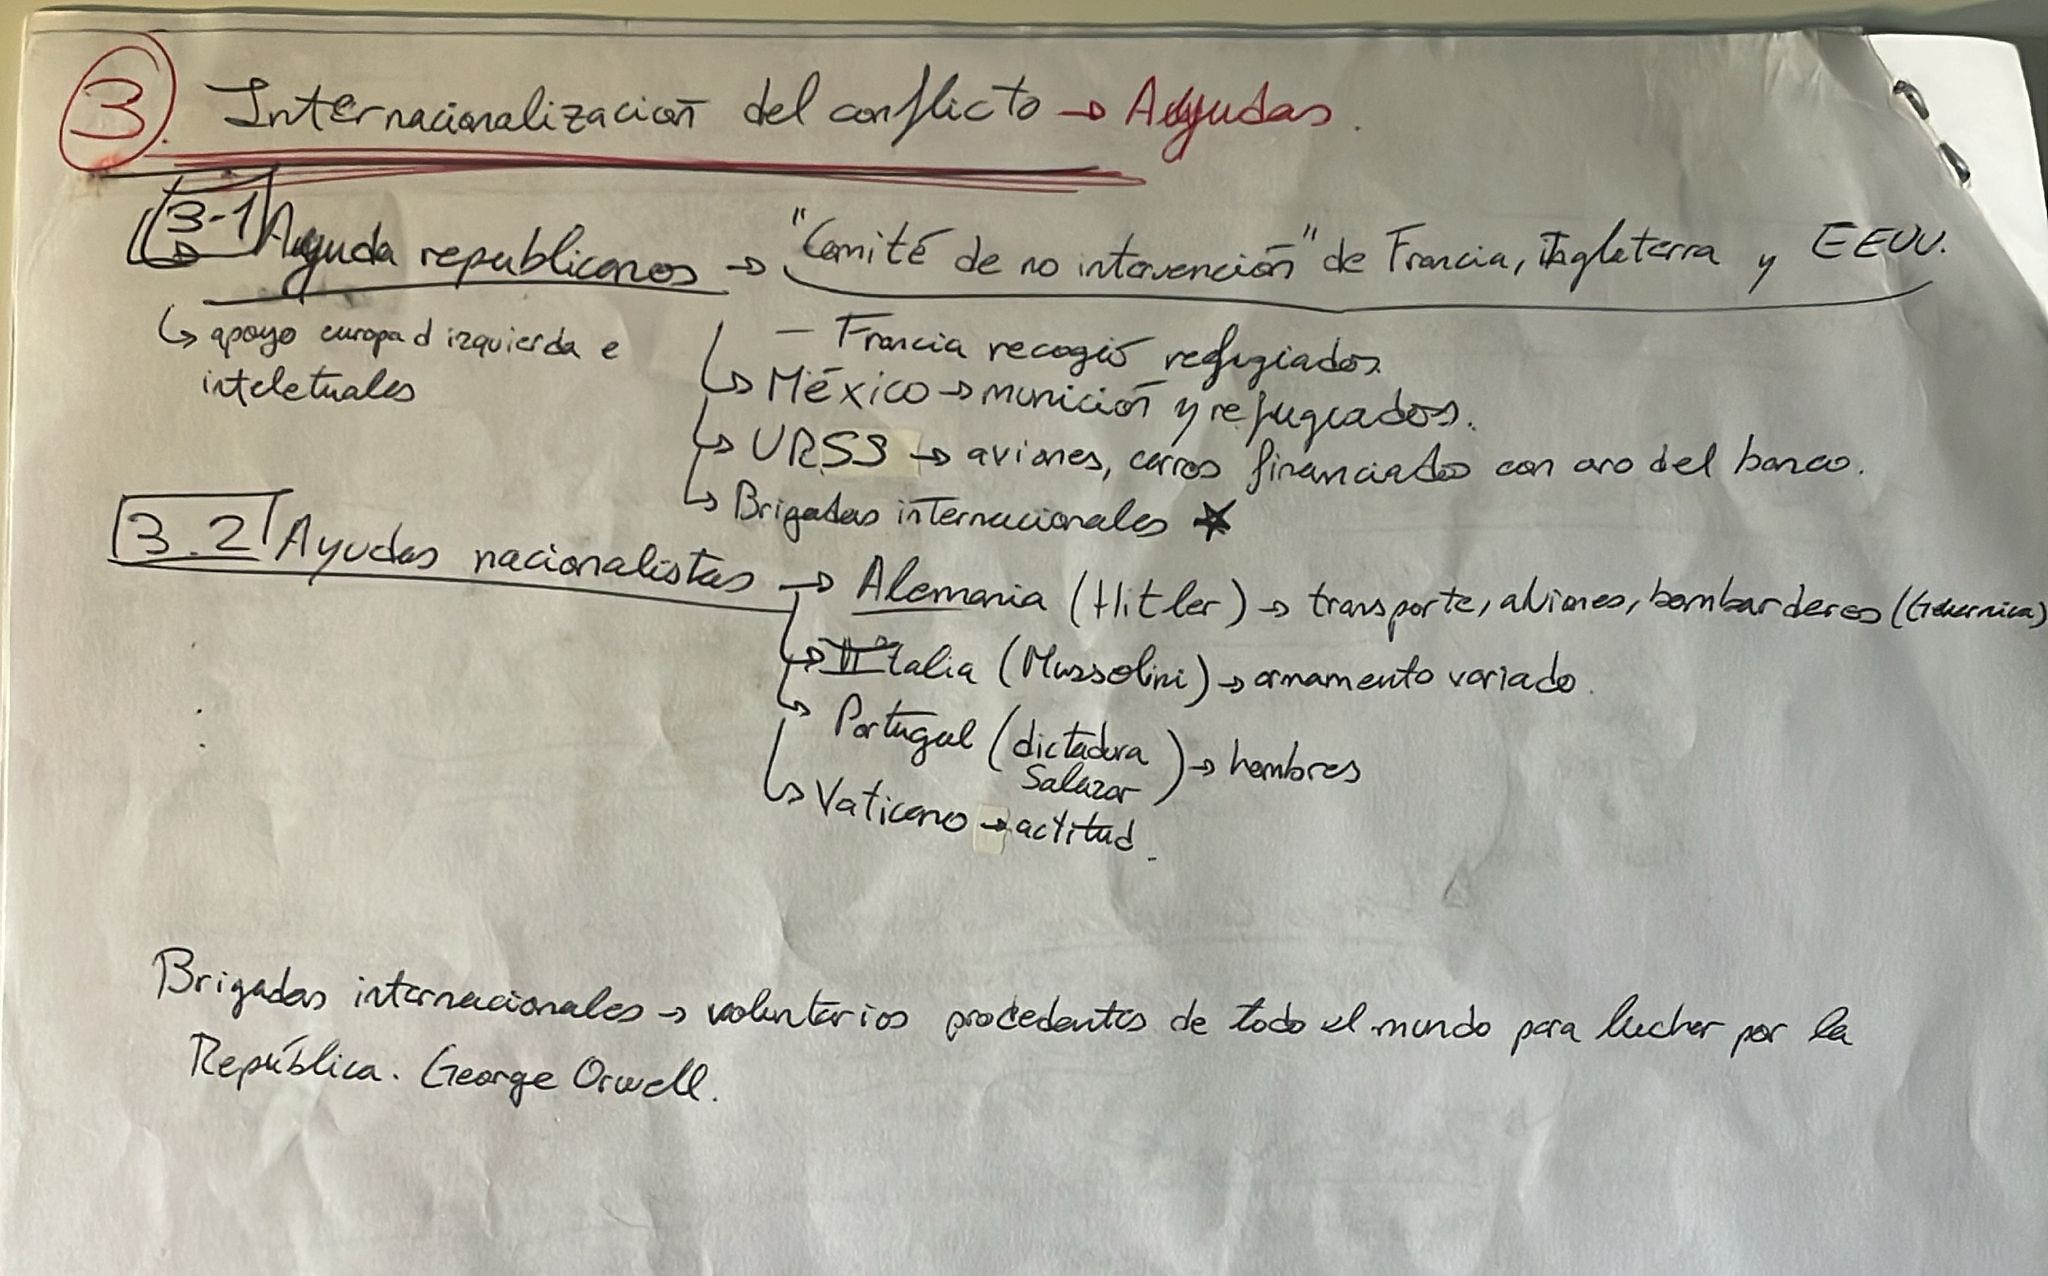 3. Internacionalización del conflicto → Ayudas.
3-1 Ayuda republicanos → "Comité de no intervención" de Francia, Inglaterra y EEUU.
↳ apoyo europa d izquierda e
inteletuales
- Francia recogió refugiados.
↳ México → munición y refugiados.
↳ URSS → aviones, carros financiados con oro del banco.
↳ Brigadas internacionales ★
3.2 Ayudas nacionalistas → Alemania (Hitler) → transporte, aviones, bombarderos (Guernica)
↳ Italia (Mussolini) → armamento variado.
↳ Portugal (dictadura
Salazar) → hombres
↳ Vaticano → actitud.
Brigadas internacionales → voluntarios procedentes de todo el mundo para luchar por la
República. George Orwell.